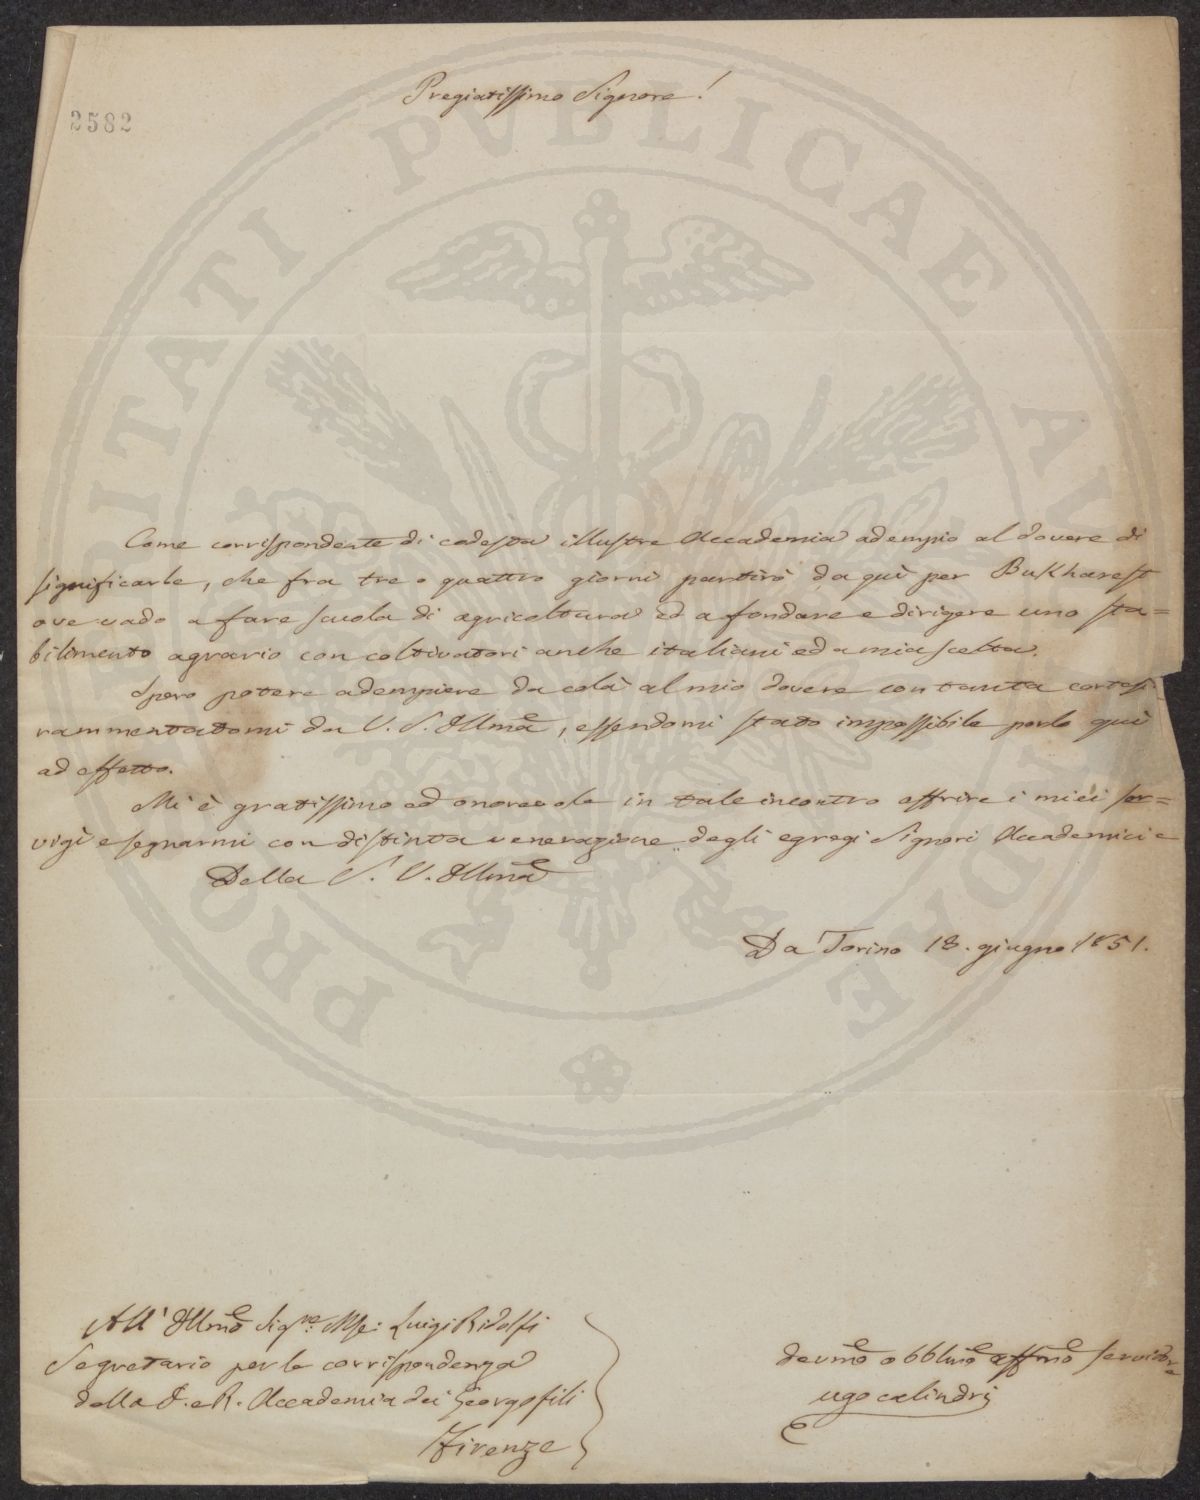 Pregiatissimo Signore!
2582
PROSPERITATI PVBLICAE AVGENDAE
Come corrispondente di codesta illustre Accademia adempio al dovere di
significarle, che fra tre o quattro giorni partirò da quì per Bukharest
ove vado a fare scuola di agricoltura ed a fondare e dirigere uno sta=
bilimento agrario con coltivatori anche italiani ed a mia scelta.
Spero potere adempiere da colà al mio dovere con tanta cortesi
rammentatomi da V. S. Illma, essendomi stato impossibile porlo quì
ad effetto.
Mi è gratissimo ed onorevole in tale incontro offrire i miei ser=
vigi e segnarmi con distinta venerazione degli egregi Signori Accademici e
Della S. V. Illma
Da Torino 18. giugno 1851.
All' Illmo Sigre: Mse: Luigi Ridolfi
Segretario per la corrispondenza
della I. e R. Accademia dei Georgofili
Firenze
devmo obblmo affmo servidore
ugo calindri